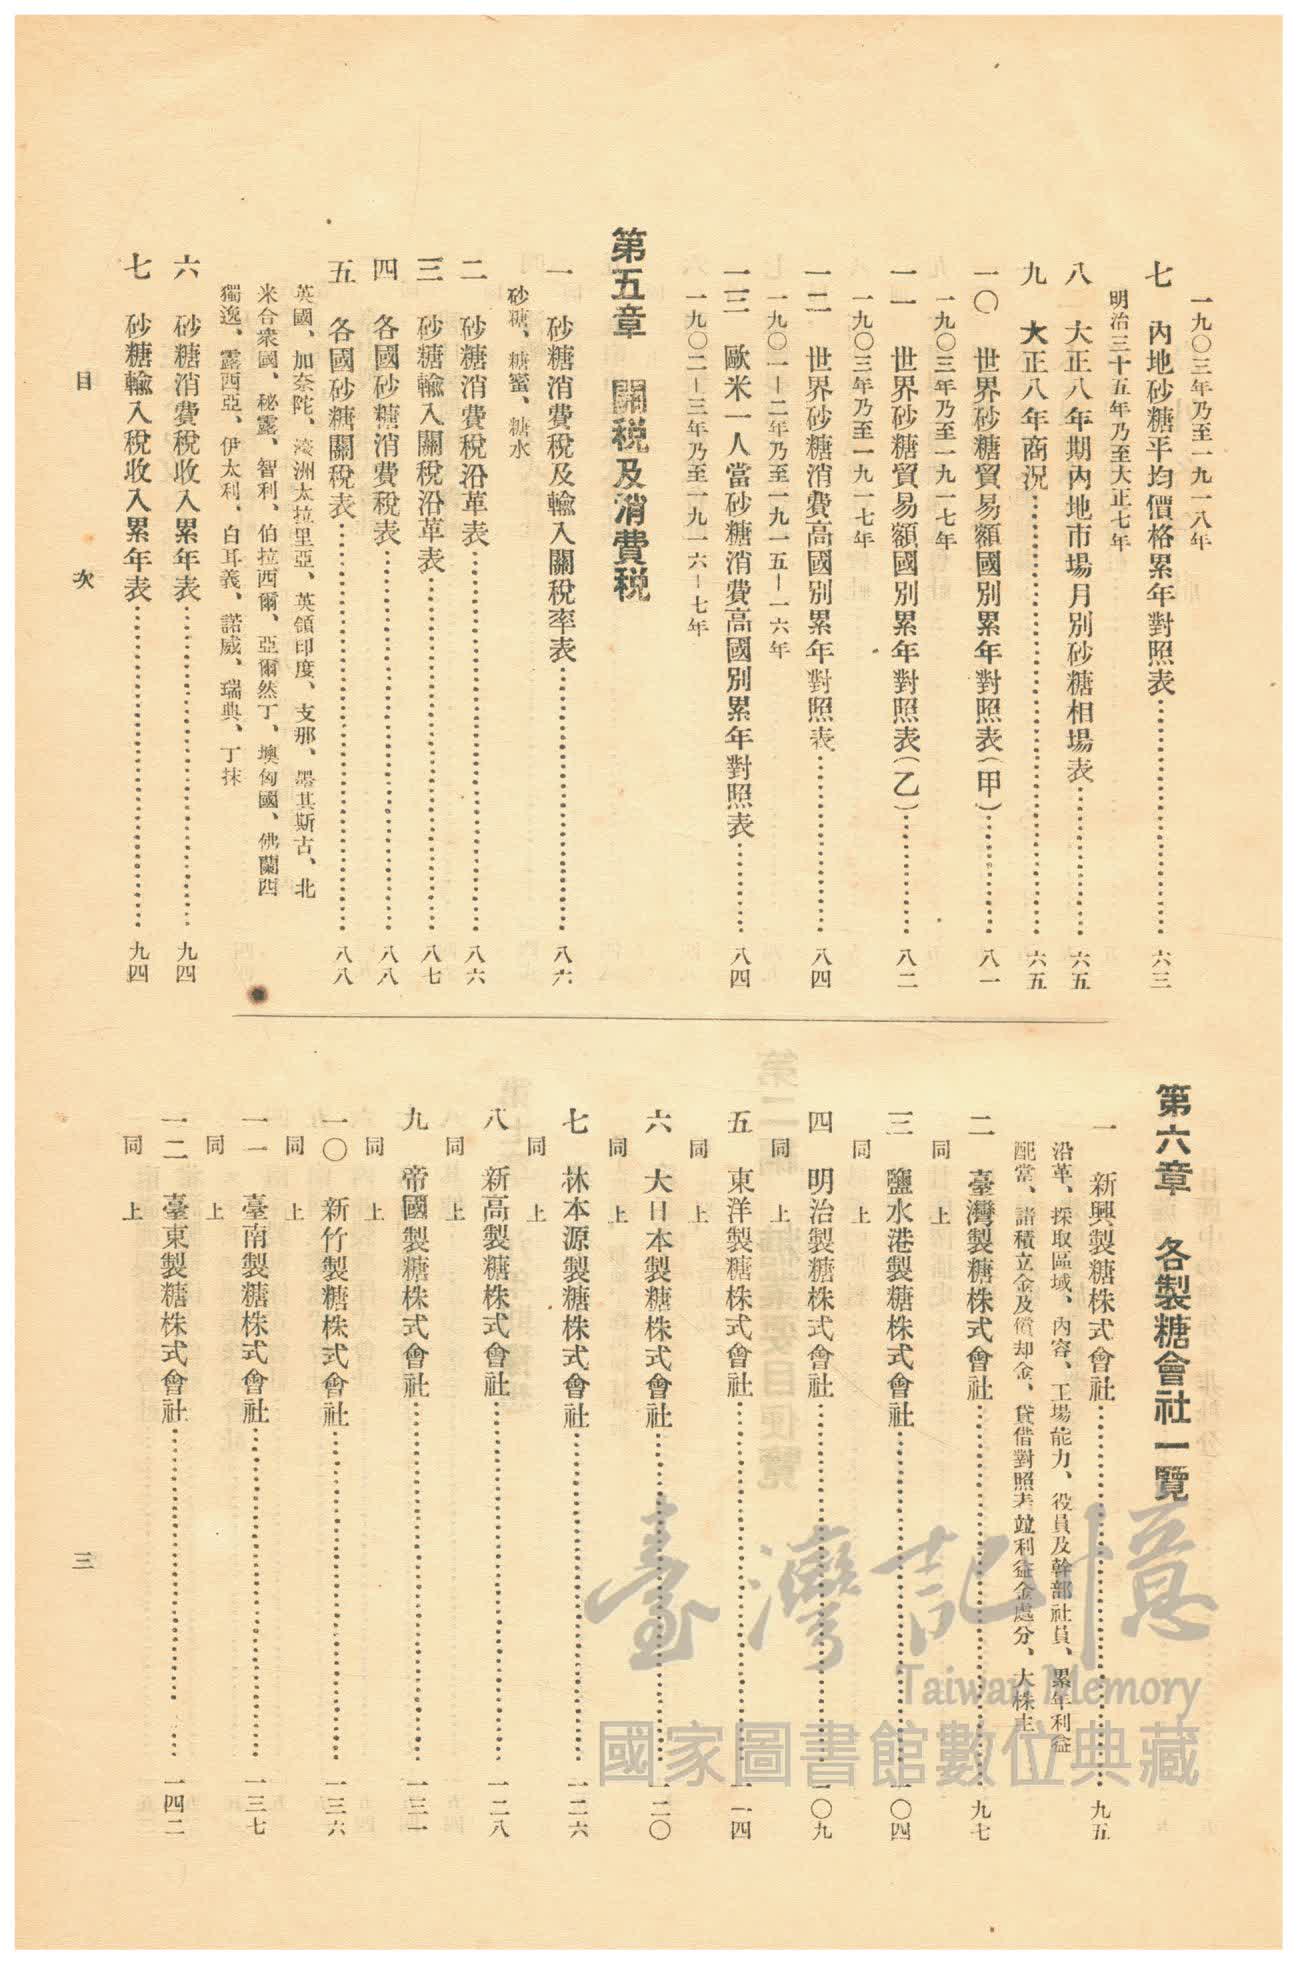 一九〇三年乃至一九一八年
七 內地砂糖平均價格累年對照表……六三
明治三十五年乃至大正七年
八 大正八年期內地市場月別砂糖相場表……六五
九 大正八年商況……六五
一〇 世界砂糖貿易額國別累年對照表(甲)……八一
一九〇三年乃至一九一七年
一一 世界砂糖貿易額國別累年對照表(乙)……八二
一九〇三年乃至一九一七年
一二 世界砂糖消費高國別累年對照表……八四
一九〇一－二年乃至一九一五－一六年
一三 歐米一人當砂糖消費高國別累年對照表……八四
一九〇二－三年乃至一九一六－七年
第五章 關税及消費税
一 砂糖消費稅及輸入關稅率表……八六
砂糖、糖蜜、糖水
二 砂糖消費稅沿革表……八六
三 砂糖輸入關稅沿革表……八七
四 各國砂糖消費稅表……八八
五 各國砂糖關稅表……八八
英國、加奈陀、濠洲太拉里亞、英領印度、支那、墨其斯古、北
米合衆國、秘露、智利、伯拉西爾、亞爾然丁、墺匈國、佛蘭西
獨逸、露西亞、伊太利、白耳義、諾威、瑞典、丁抹
六 砂糖消費稅收入累年表……九四
七 砂糖輸入稅收入累年表……九四
第六章 各製糖會社一覽
一 新興製糖株式會社……九五
沿革、採取區域、內容、工場能力、役員及幹部社員、累年利益
配當、諸積立金及償却金、貸借對照表並利益金處分、大株主
二 臺灣製糖株式會社……九七
同 上
三 鹽水港製糖株式會社……一〇四
同 上
四 明治製糖株式會社……一〇九
同 上
五 東洋製糖株式會社……一一四
同 上
六 大日本製糖株式會社……一二〇
同 上
七 林本源製糖株式會社……一二六
同 上
八 新高製糖株式會社……一二八
同 上
九 帝國製糖株式會社……一三一
同 上
一〇 新竹製糖株式會社……一三六
同 上
一一 臺南製糖株式會社……一三七
同 上
一二 臺東製糖株式會社……一四二
同 上
目 次
三
臺灣記憶
Taiwan Memory
國家圖書館數位典藏